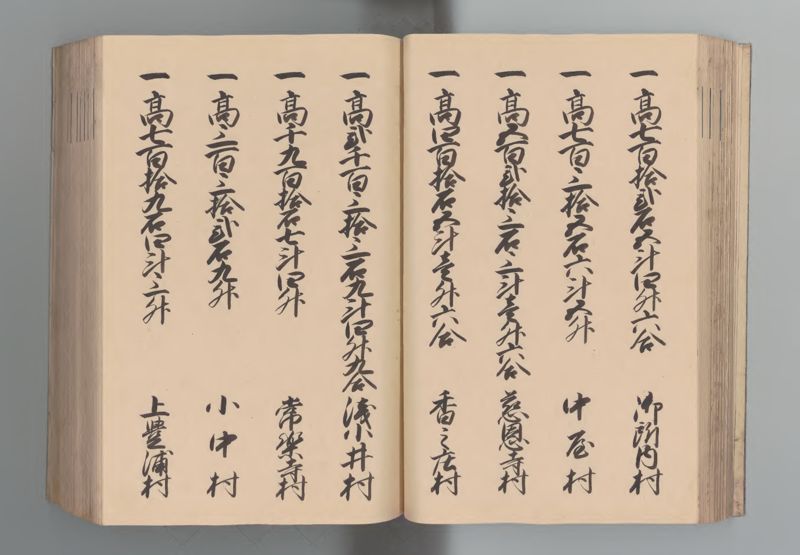 一高七百拾弐石五斗四升六合 御所内村
一高七百三拾五石六斗五升 中屋村
一高五百弐拾三石三斗壱升六合 慈恩寺村
一高四百拾石五斗壱升六合 香之庄村
一高弐千百三拾三石九斗四升九合 浅小井村
一高千九百拾石七斗四升 常楽寺村
一高三百三拾弐石九升 小中村
一高七百拾九石四斗三升 上豊浦村